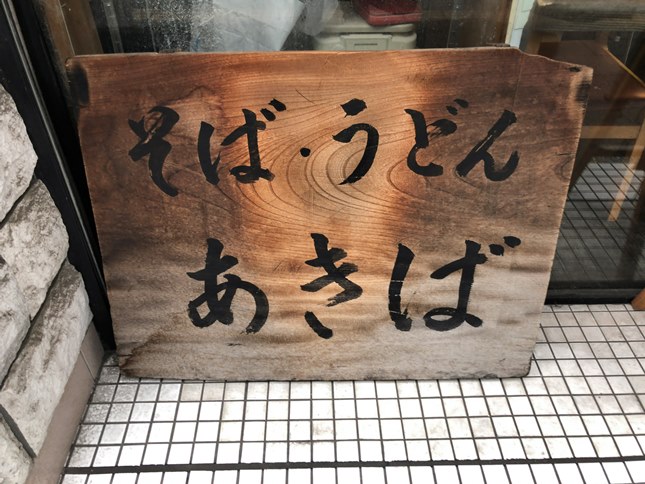 そば・うどん
あきば